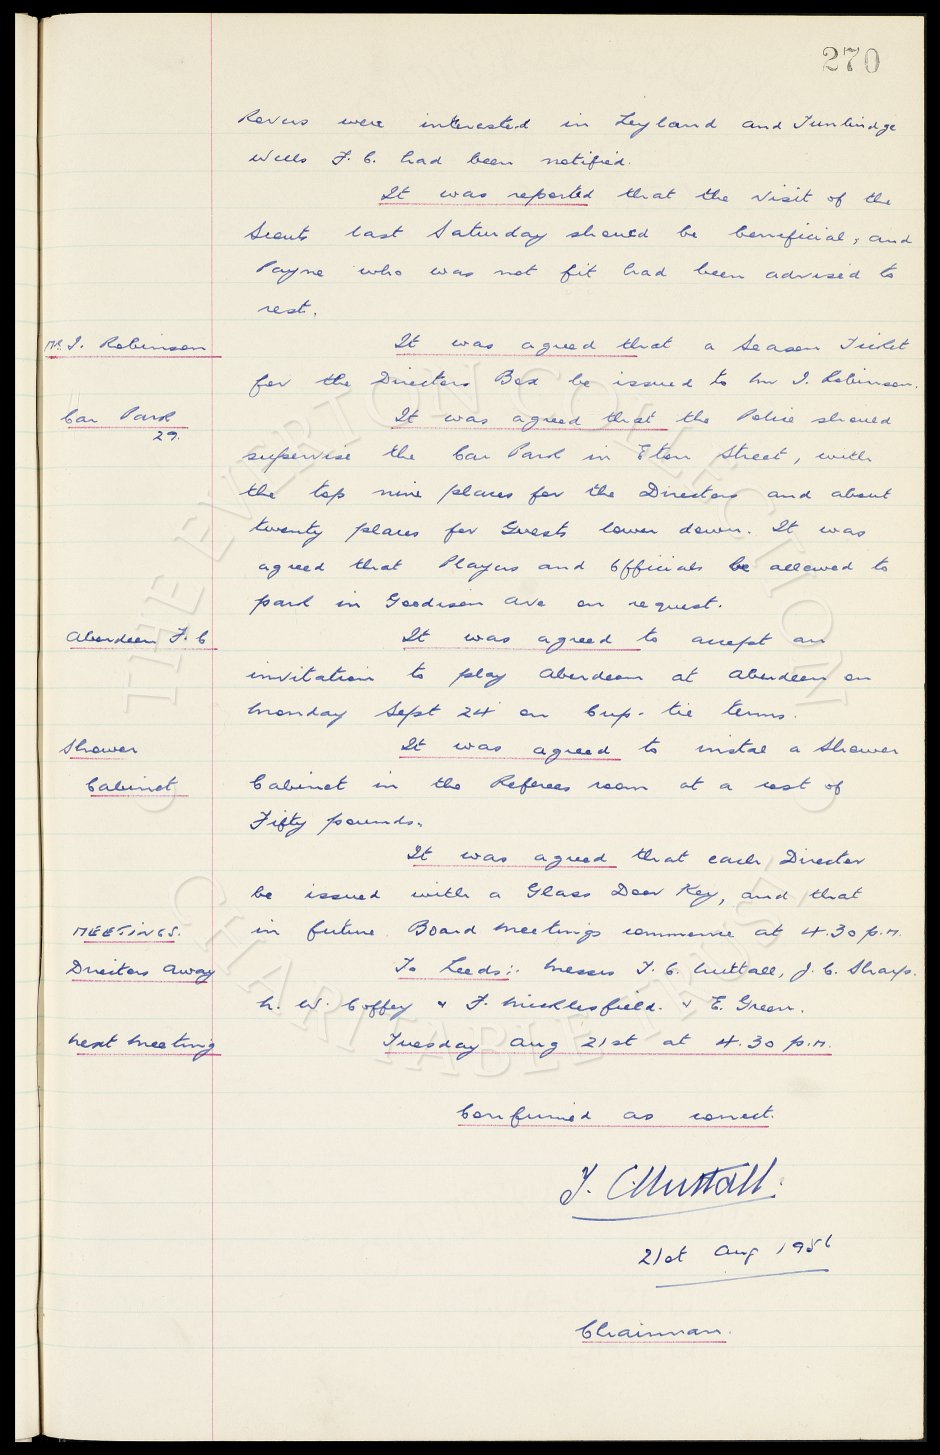 270
Rovers were interested in Leyland and Tunbridge
Wells F. C. had been notified.
It was reported that the visit of the
Scouts last Saturday should be beneficial, and
Payne who was not fit had been advised to
rest.
Mr. I. Robinson
It was agreed that a Season Ticket
for the Directors Box be issued to Mr I. Robinson.
Car Park
29.
It was agreed that the Police should
supervise the Car Park in Eton Street, with
the top nine places for the Directors and about
twenty places for Guests lower down. It was
agreed that Players and Officials be allowed to
park in Goodison Ave on request.
Aberdeen F. C
It was agreed to accept an
invitation to play Aberdeen at Aberdeen on
Monday Sept 24 on Cup-tie terms.
Shower
Cabinet
It was agreed to instal a Shower
Cabinet in the Referees room at a cost of
Fifty pounds.
It was agreed that each Director
be issued with a Glass Door Key, and that
MEETINGS.
in future Board Meetings commence at 4.30 p.m.
Directors away
To Leeds:. Messrs T. C. Nuttall, J. C. Sharp.
N. W. Coffey & F. Micklesfield. & E. Green.
Next Meeting
Tuesday Aug 21st at 4.30 p.m.
Confirmed as correct.
T. C Nuttall.
21st Aug 1956
Chairman.
THE EVERTON COLLECTION
CHARITABLE TRUST